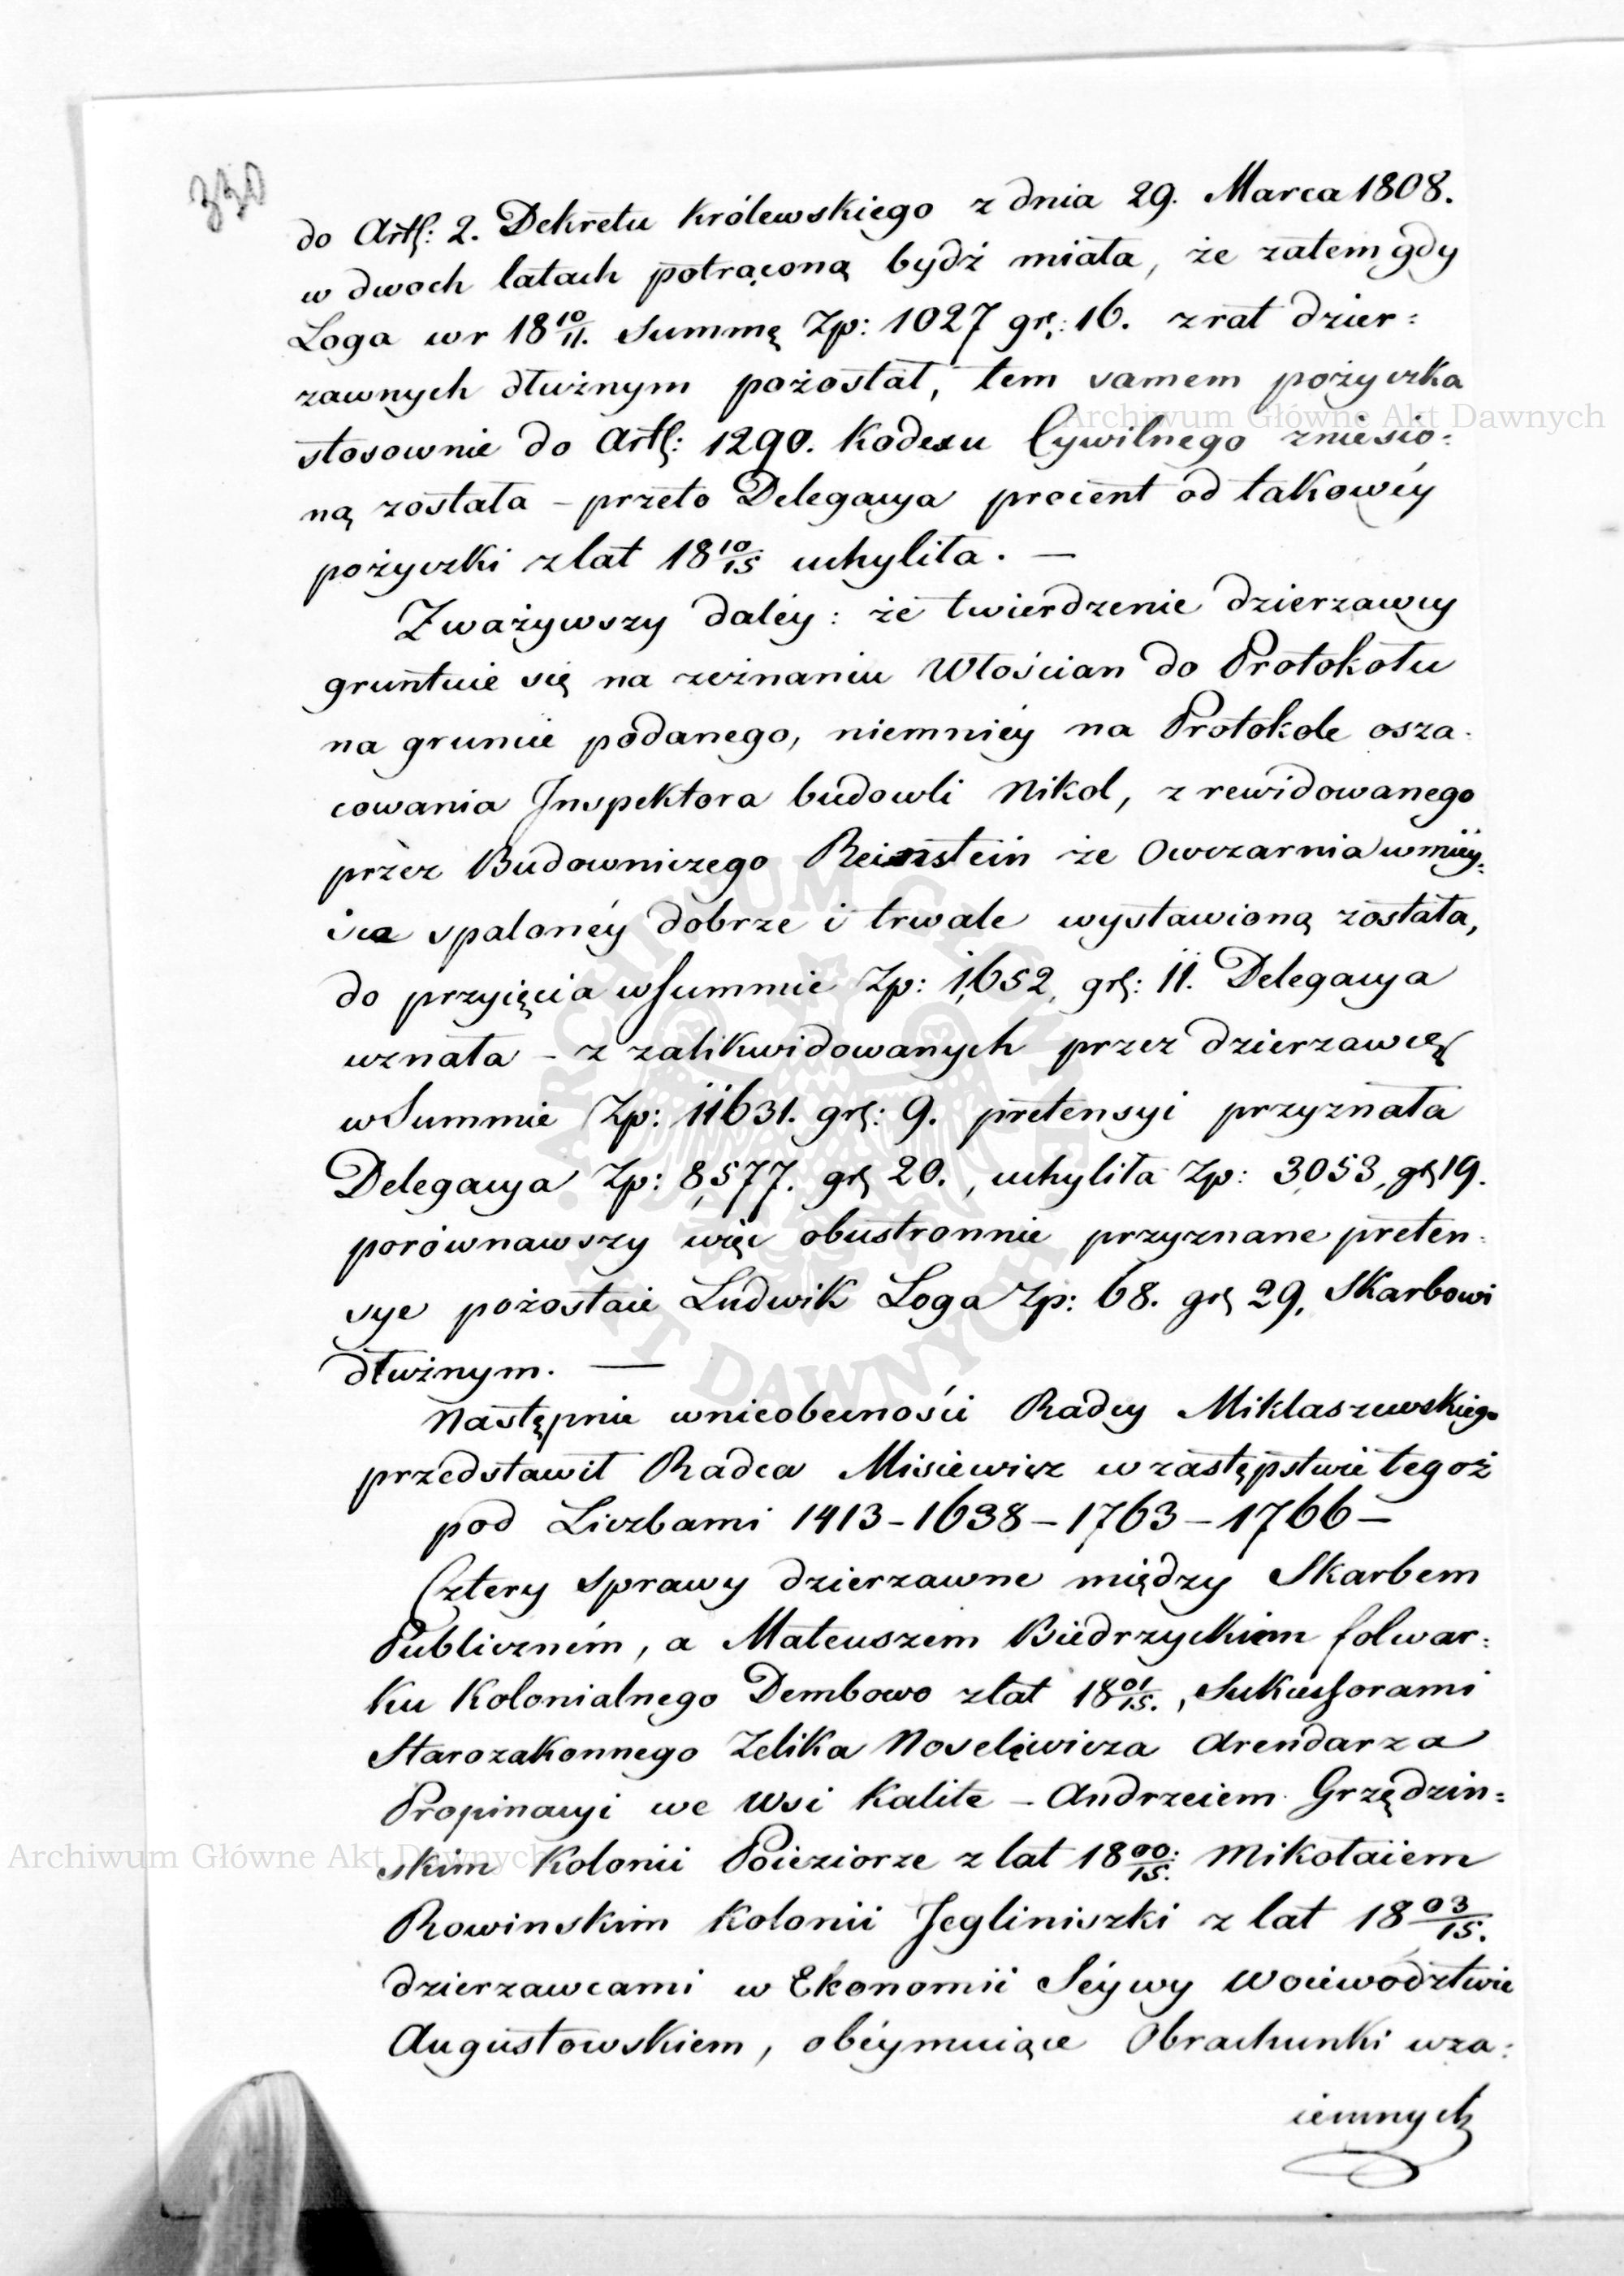 330
do Artł: 2. Dekretu Królewskiego z dnia 29. Marca 1808.
w dwoch latach potrąconą bydź miała, że zatem gdy
Loga w r 18 10/11. Summę Zp: 1027 gr: 16. z rat dzier:
zawnych dłużnym pozostał, tem samem pożyczka
stosownie do Artł: 1290. Kodexu Cywilnego zniesio:
ną została – przeto Delegacya procent od takowéy
pożyczki z lat 18 10/15 uchyliła. —
Zważywszy daléy: że twierdzenie dzierzawcy
gruntuie się na zeznaniu Włościan do Protokołu
na gruncie podanego, niemniéy na Protokole osza:
cowania Inspektora budowli Nikol, zrewidowanego
przez Budowniczego Reinstein że Owczarnia w miéy:
sca spalonéy dobrze i trwale wystawioną została,
do przyięcia w Summie Zp: 1,652, grł: 11. Delegacya
uznała – z zalikwidowanych przez dzierzawcę
w Summie Zp: 11631. grł: 9. pretensyi przyznała
Delegacya Zp: 8,577. gł 20., uchyliła Zp: 3,053, gł 19.
porównawszy więc obustronnie przyznane preten:
sye pozostaie Ludwik Loga Zp: 68. gł 29, Skarbowi
dłużnym. —
Następnie w nieobecności Radcy Miklaszewskiego
przedstawił Radca Misiewicz w zastępstwie tegoż
pod Liczbami 1413 – 1638 – 1763 – 1766 –
Cztery sprawy dzierzawne między Skarbem
Publiczném, a Mateuszem Biedrzyckim folwar:
ku Kolonialnego Dembowo z lat 18 01/15., Sukcessorami
Starozakonnego Zelika Noselewicza Arendarza
Propinacyi we Wsi Kalite – Andrzeiem Grzędzin:
skim Kolonii Poieziorze z lat 18 00/15. Mikołaiem
Rowinskim Kolonii Jegliniszki z lat 18 03/15.
dzierzawcami w Ekonomii Séywy Woiewództwie
Augustowskiem, obéymuiące Obrachunki wza:
iemnych
Archiwum Główne Akt Dawnych
Archiwum Główne Akt Dawnych
ARCHIWUM GŁÓWNE AKT DAWNYCH